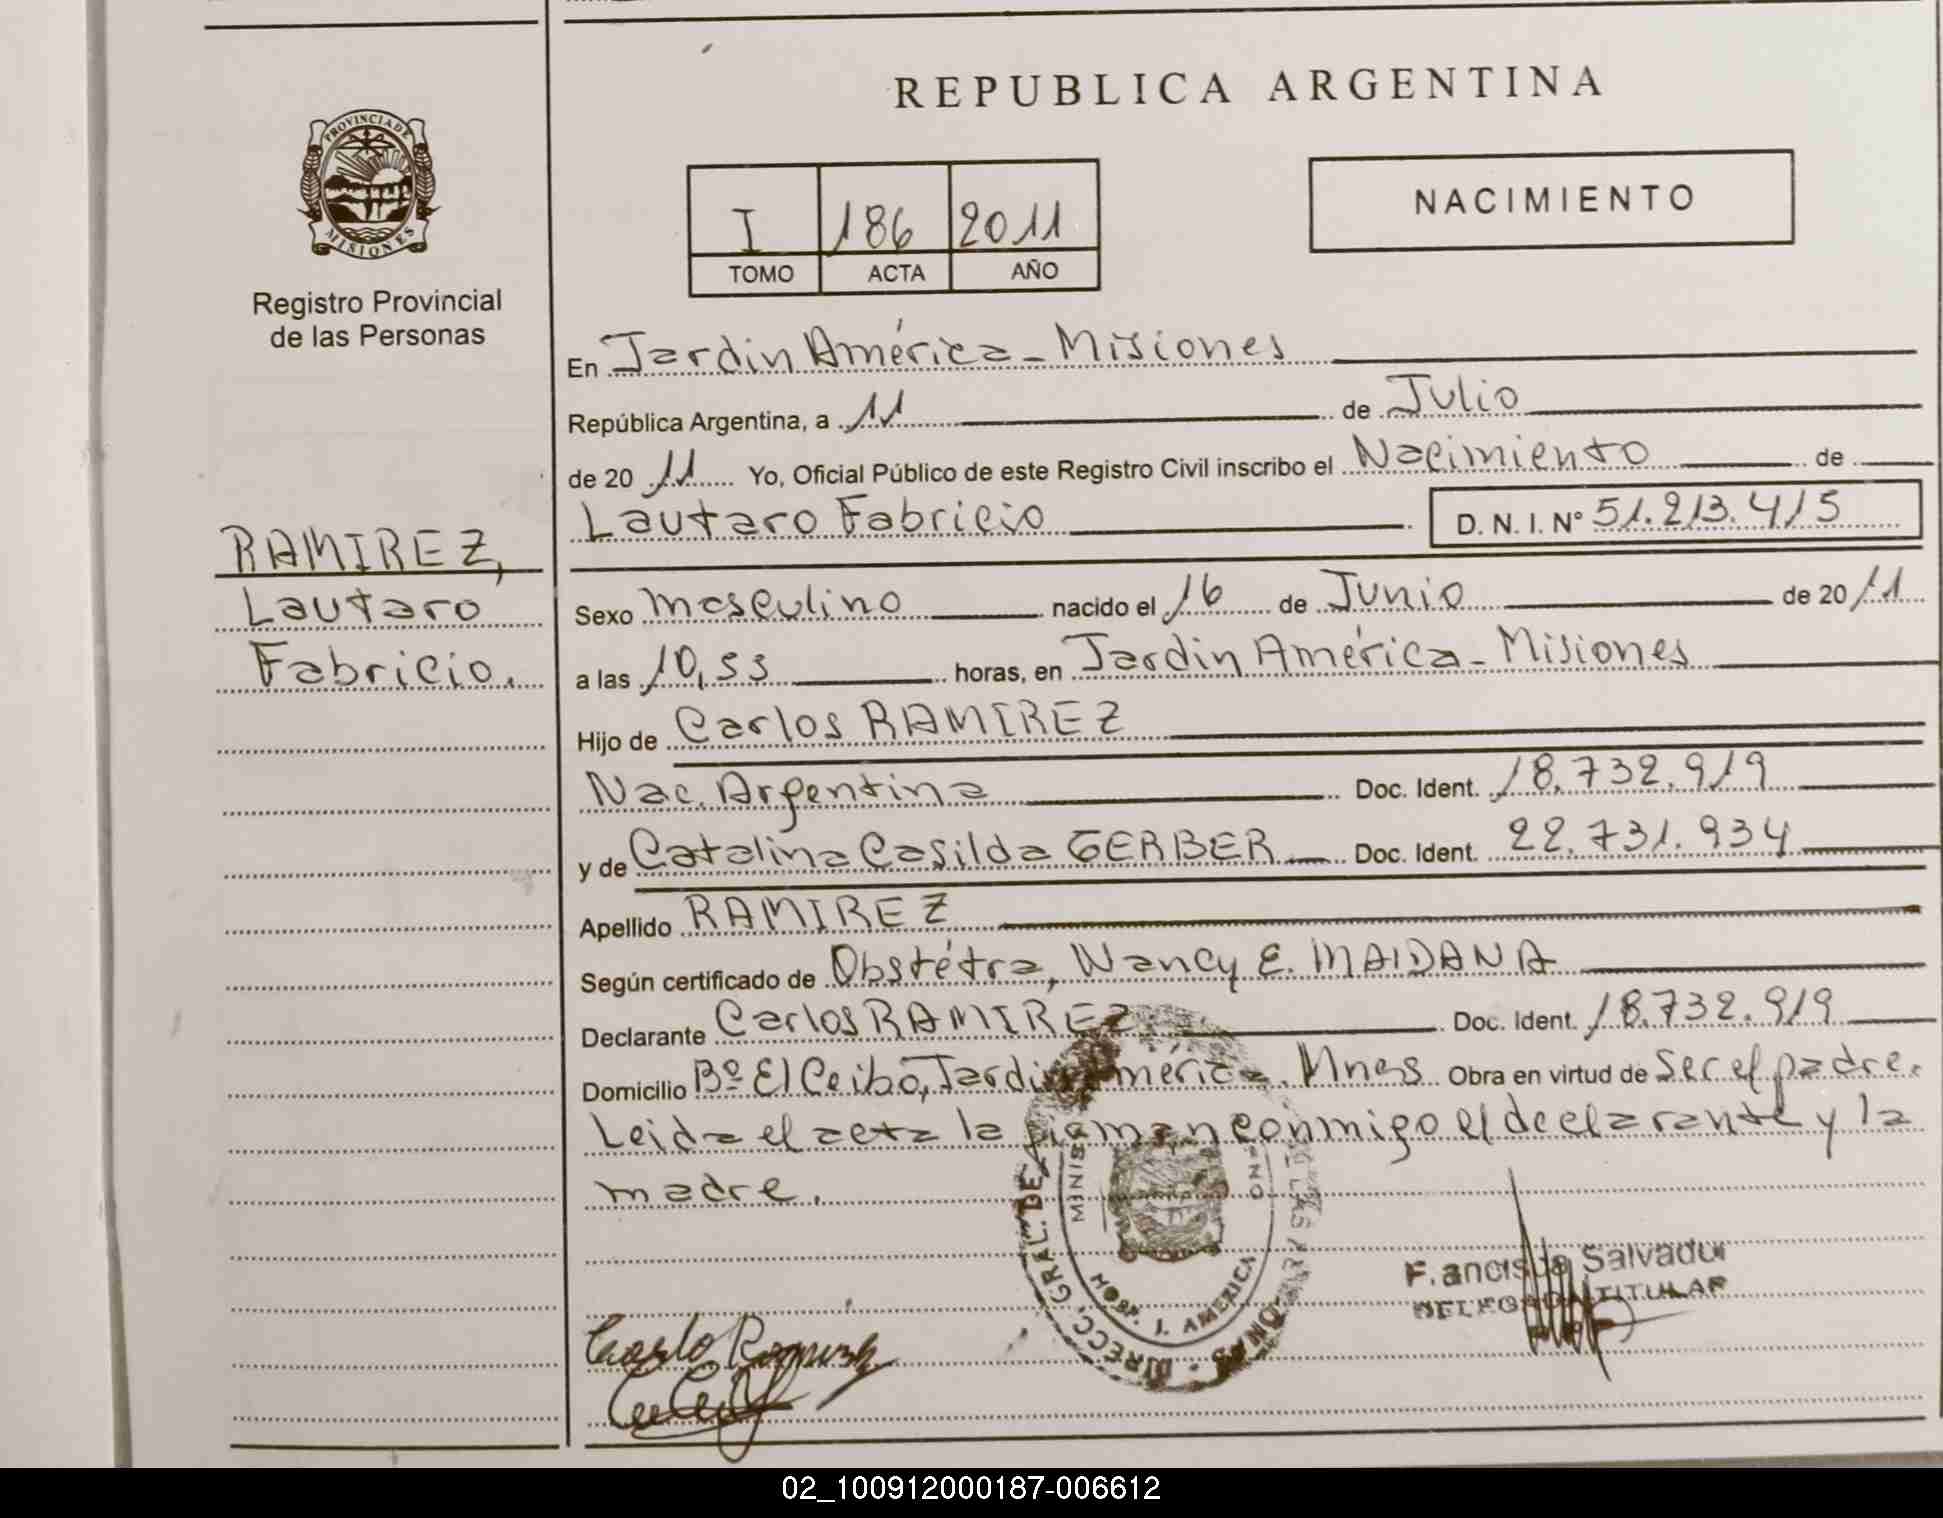 REPUBLICA ARGENTINA
PROVINCIA DE
MISIONES
Registro Provincial
de las Personas
I 186 2011
TOMO ACTA AÑO
NACIMIENTO
En Jardin América - Misiones
República Argentina, a 11 de Julio
de 20 11 Yo, Oficial Público de este Registro Civil inscribo el Nacimiento de
Lautaro Fabricio D. N. I. Nº 51.213.415
RAMIREZ,
Lautaro
Fabricio.
Sexo masculino nacido el 16 de Junio de 20 11
a las 10,53 horas, en Jardin América - Misiones
Hijo de Carlos RAMIREZ
Nac. Argentina Doc. Ident. 18.732.919
y de Catalina Casilda GERBER Doc. Ident. 22.731.934
Apellido RAMIREZ
Según certificado de Obstétra, Nancy E. MAIDANA
Declarante Carlos RAMIREZ Doc. Ident. 18.732.919
Domicilio Bº El Ceibo, Jardin América. Mnes Obra en virtud de ser el padre.
Leida el acta la firman conmigo el declarante y la
madre.
DIRECC. GRAL. DE
HOSP. J. AMERICA
Salvador
TITULAR
02_100912000187-006612